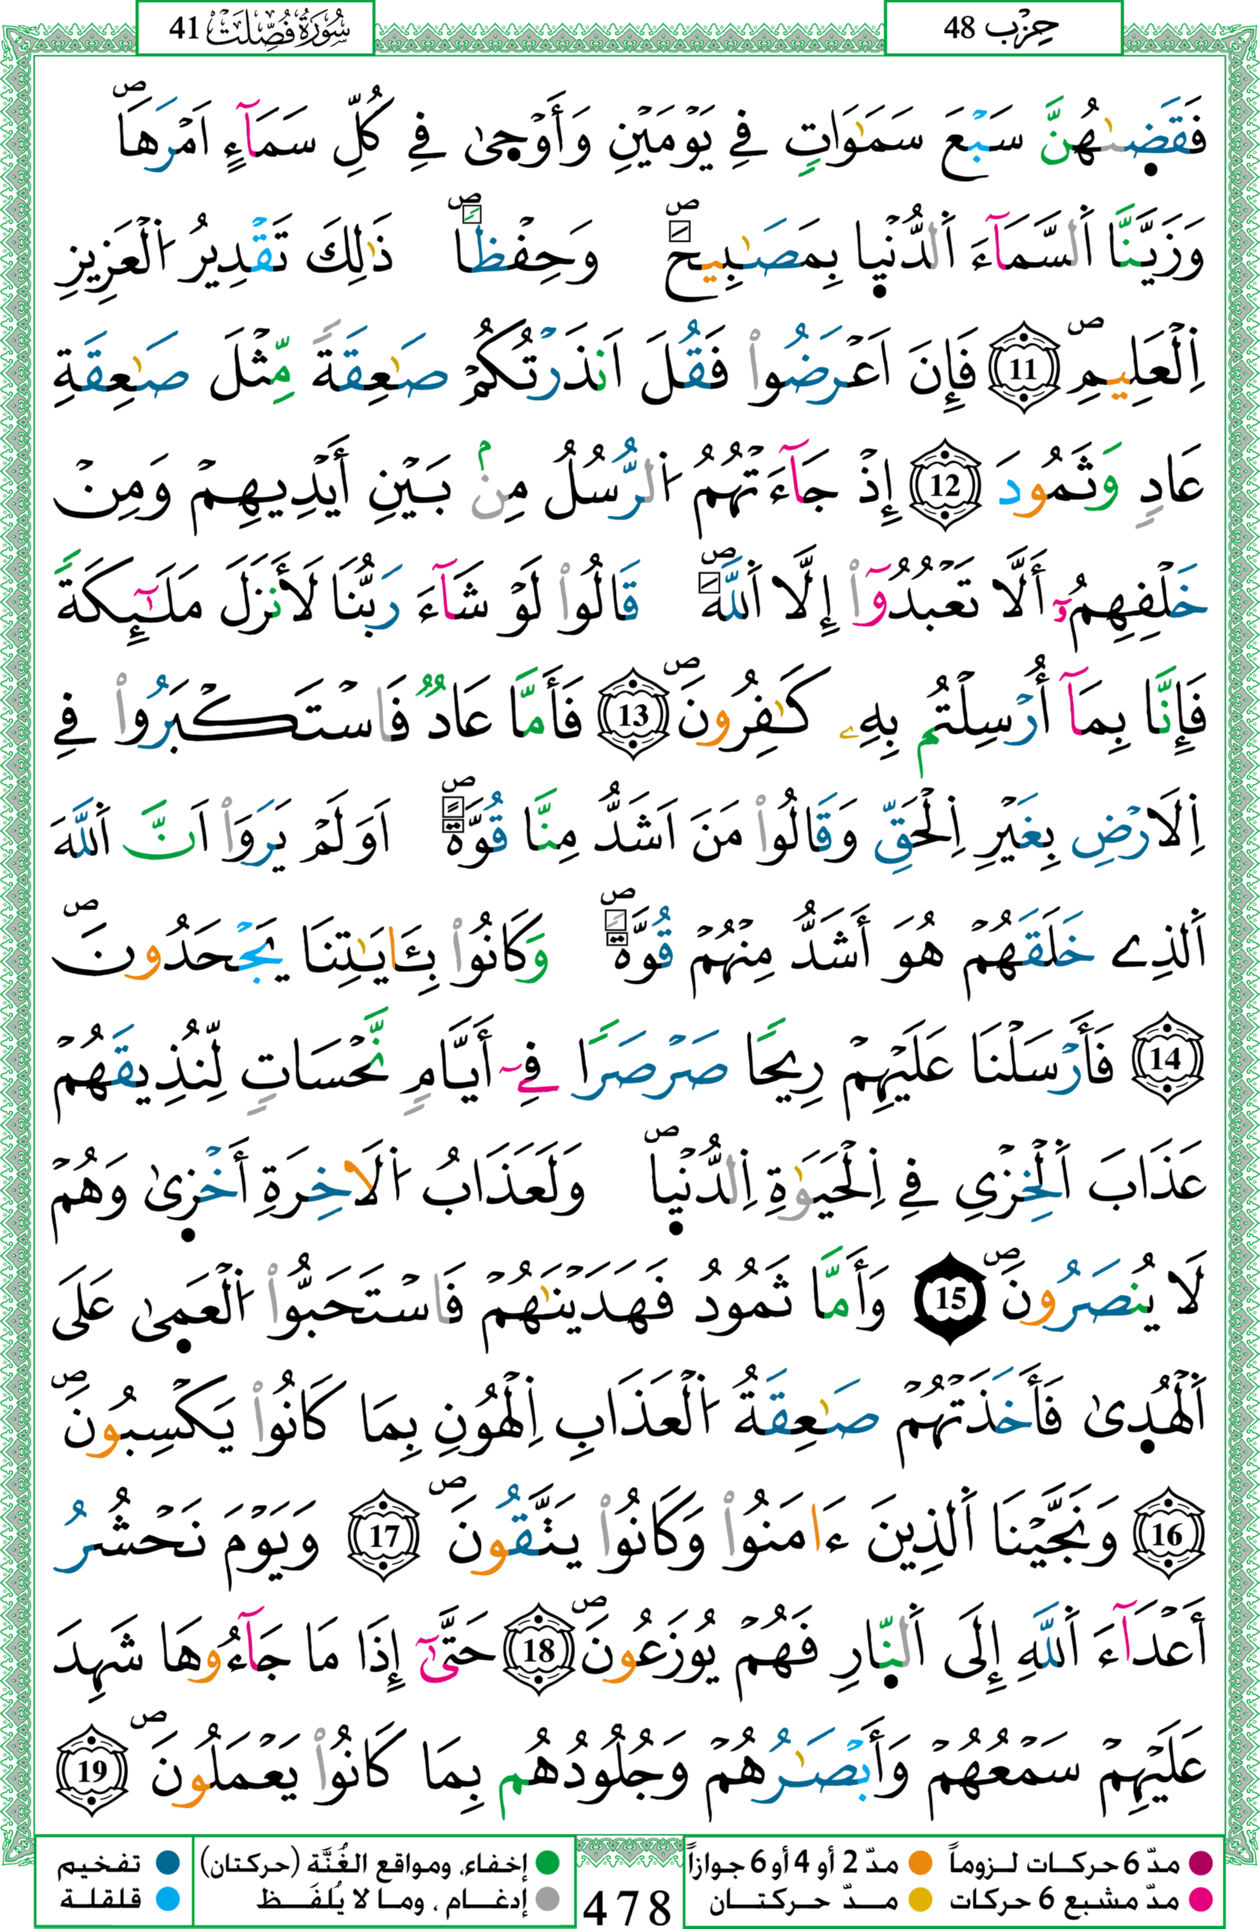 حِزْب 48
سُورَةُ فُصِّلَتْ 41
فَقَضٜىٰهُنَّ سَبْعَ سَمَٰوَاتٖ فِے يَوْمَيْنِ وَأَوْح۪يٰ فِے كُلِّ سَمَآءٍ اَمْرَهَاۖ
وَزَيَّنَّا اَ۬لسَّمَآءَ اَ۬لدُّنْي۪ا بِمَصَٰبِيحَۖ وَحِفْظاٗۖ ذَٰلِكَ تَقْدِيرُ اُ۬لْعَزِيزِ
اِ۬لْعَلِيمِۖ 11 فَإِنَ اَعْرَضُواْ فَقُلَ اَنذَرْتُكُمْ صَٰعِقَةٗ مِّثْلَ صَٰعِقَةِ
عَادٖ وَثَمُودَ 12 إِذْ جَآءَتْهُمُ اُ۬لرُّسُلُ مِنۢ بَيْنِ أَيْدِيهِمْ وَمِنْ
خَلْفِهِمُۥٓ أَلَّا تَعْبُدُوٓاْ إِلَّا اَ۬للَّهَۖ قَالُواْ لَوْ شَآءَ رَبُّنَا لَأَنزَلَ مَلَٰٓئِكَةٗ
فَإِنَّا بِمَآ أُرْسِلْتُم بِهِۦ كَٰفِرُونَۖ 13 فَأَمَّا عَادٞ فَاسْتَكْبَرُواْ فِے
اِ۬لَارْضِ بِغَيْرِ اِ۬لْحَقِّ وَقَالُواْ مَنَ اَشَدُّ مِنَّا قُوَّةًۖ اَوَلَمْ يَرَوَاْ اَنَّ اَ۬للَّهَ
اَ۬لذِے خَلَقَهُمْ هُوَ أَشَدُّ مِنْهُمْ قُوَّةٗۖ وَكَانُواْ بِـَٔايَٰتِنَا يَجْحَدُونَۖ
14 فَأَرْسَلْنَا عَلَيْهِمْ رِيحاٗ صَرْصَراٗ فِےٓ أَيَّامٖ نَّحْسَاتٖ لِّنُذِيقَهُمْ
عَذَابَ اَ۬لْخِزْيِ فِے اِ۬لْحَيَوٰةِ اِ۬لدُّنْي۪اۖ وَلَعَذَابُ اُ۬لَاخِرَةِ أَخْز۪يٰ وَهُمْ
لَا يُنصَرُونَۖ 15 وَأَمَّا ثَمُودُ فَهَدَيْنَٰهُمْ فَاسْتَحَبُّواْ اُ۬لْعَم۪يٰ عَلَى
اَ۬لْهُد۪يٰ فَأَخَذَتْهُمْ صَٰعِقَةُ اُ۬لْعَذَابِ اِ۬لْهُونِ بِمَا كَانُواْ يَكْسِبُونَۖ
16 وَنَجَّيْنَا اَ۬لذِينَ ءَامَنُواْ وَكَانُواْ يَتَّقُونَۖ 17 وَيَوْمَ نَحْشُرُ
أَعْدَآءَ اَ۬للَّهِ إِلَى اَ۬لنّ۪ارِ فَهُمْ يُوزَعُونَۖ 18 حَتَّىٰٓ إِذَا مَا جَآءُوهَا شَهِدَ
عَلَيْهِمْ سَمْعُهُمْ وَأَبْصَٰرُهُمْ وَجُلُودُهُم بِمَا كَانُواْ يَعْمَلُونَۖ 19
مدّ 6 حركات لـزوماً مدّ 2 أو 4 أو 6 جوازاً
مدّ مشبع 6 حركات مـــدّ حركتــان
478
إخفاء، ومواقع الغُنَّة (حركتان) تفخيم
إدغـام ، ومـا لا يُلفَـظ قلقلة